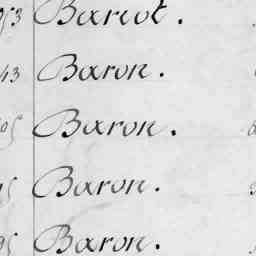 Barcot.
43 Baron.
Baron.
Baron.
Baron.